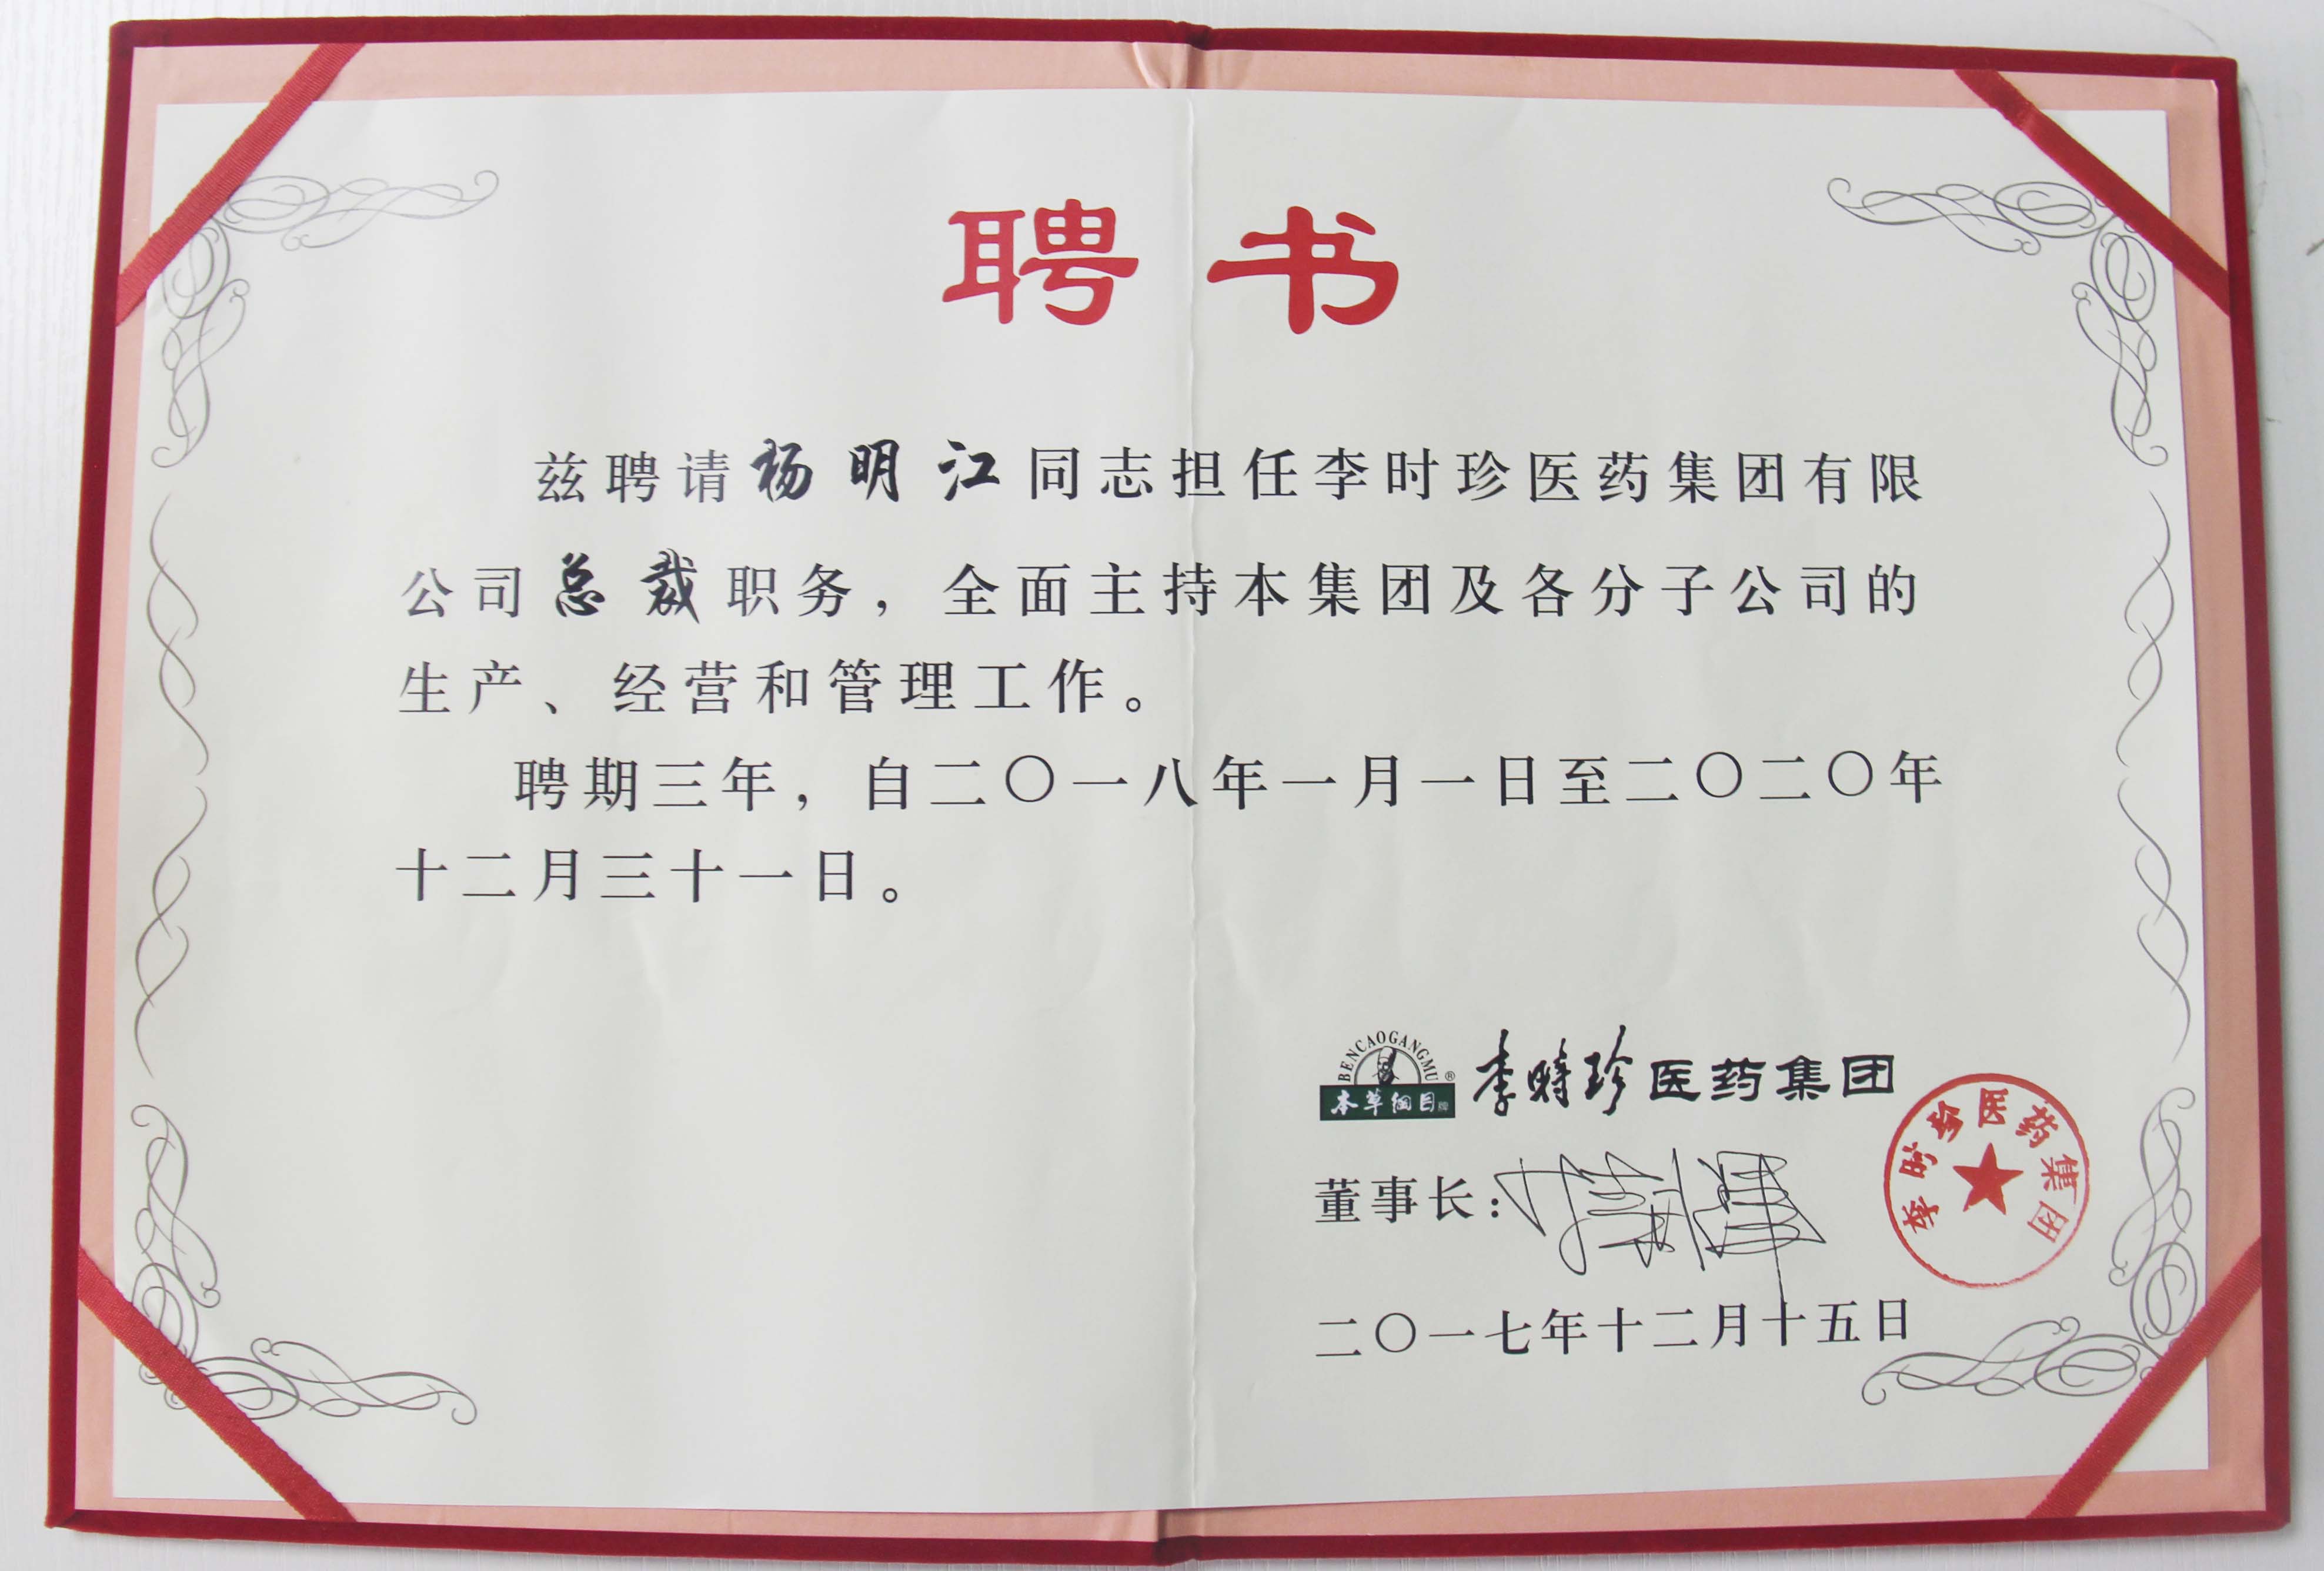 聘书
兹聘请杨明江同志担任李时珍医药集团有限
公司总裁职务，全面主持本集团及各分子公司的
生产、经营和管理工作。
聘期三年，自二〇一八年一月一日至二〇二〇年
十二月三十一日。
BENCAOGANGMU
®
本草纲目牌
李时珍医药集团
李时珍医药集团
董事长：
二〇一七年十二月十五日